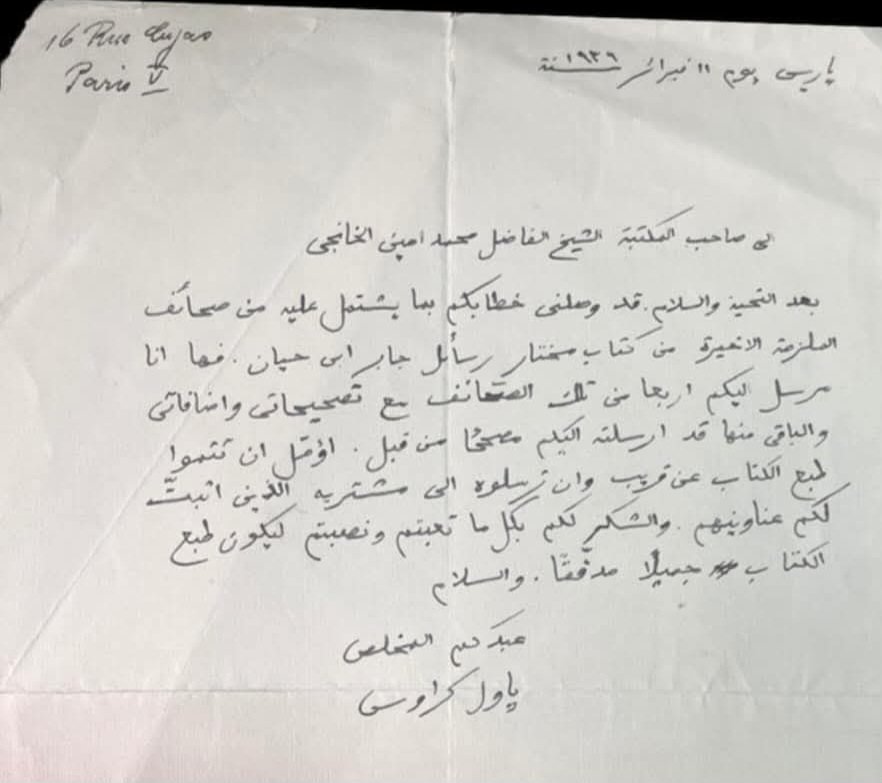 16 Rue Cujas
Paris V
پاريس يوم ١١ فبرائر سنة ١٩٣٦
الى صاحب المكتبة الشيخ الفاضل محمد امين الخانجى
بعد التحية والسلام. قد وصلنى خطابكم بما يشتمل عليه من صحائف
الملزمة الاخيرة من كتاب مختار رسائل جابر ابن حيان. فها انا
مرسل اليكم اربعا من تلك الصحائف مع تصحيحاتى واضافاتى
والباقى منها قد ارسلته اليكم مصححًا من قبل. اؤمّل ان تتموا
طبع الكتاب عن قريب وان ترسلوه الى مشتريه الذين اثبتّ
لكم عناوينهم. والشكر لكم بكل ما تعبتم ونصبتم ليكون طبع
الكتاب جميلًا مدقّقًا. والسلام
عبدكم المخلص
پاول كراوس